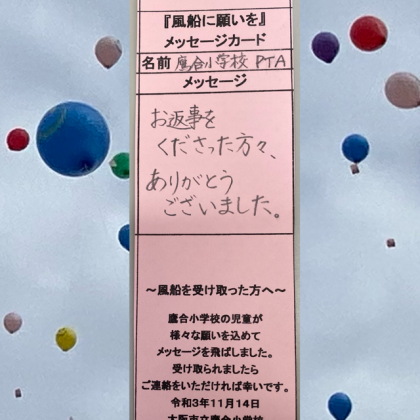 『風船に願いを』
メッセージカード
名前 鷹合小学校 PTA
メッセージ
お返事を
くださった方々、
ありがとう
ございました。
～風船を受け取った方へ～
鷹合小学校の児童が
様々な願いを込めて
メッセージを飛ばしました。
受け取られましたら
ご連絡をいただければ幸いです。
令和3年11月14日
大阪市立鷹合小学校